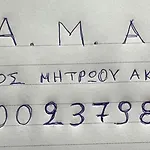 Α.Μ.Α
ΟΣ ΜΗΤΡΩΟΥ ΑΚ
00923798